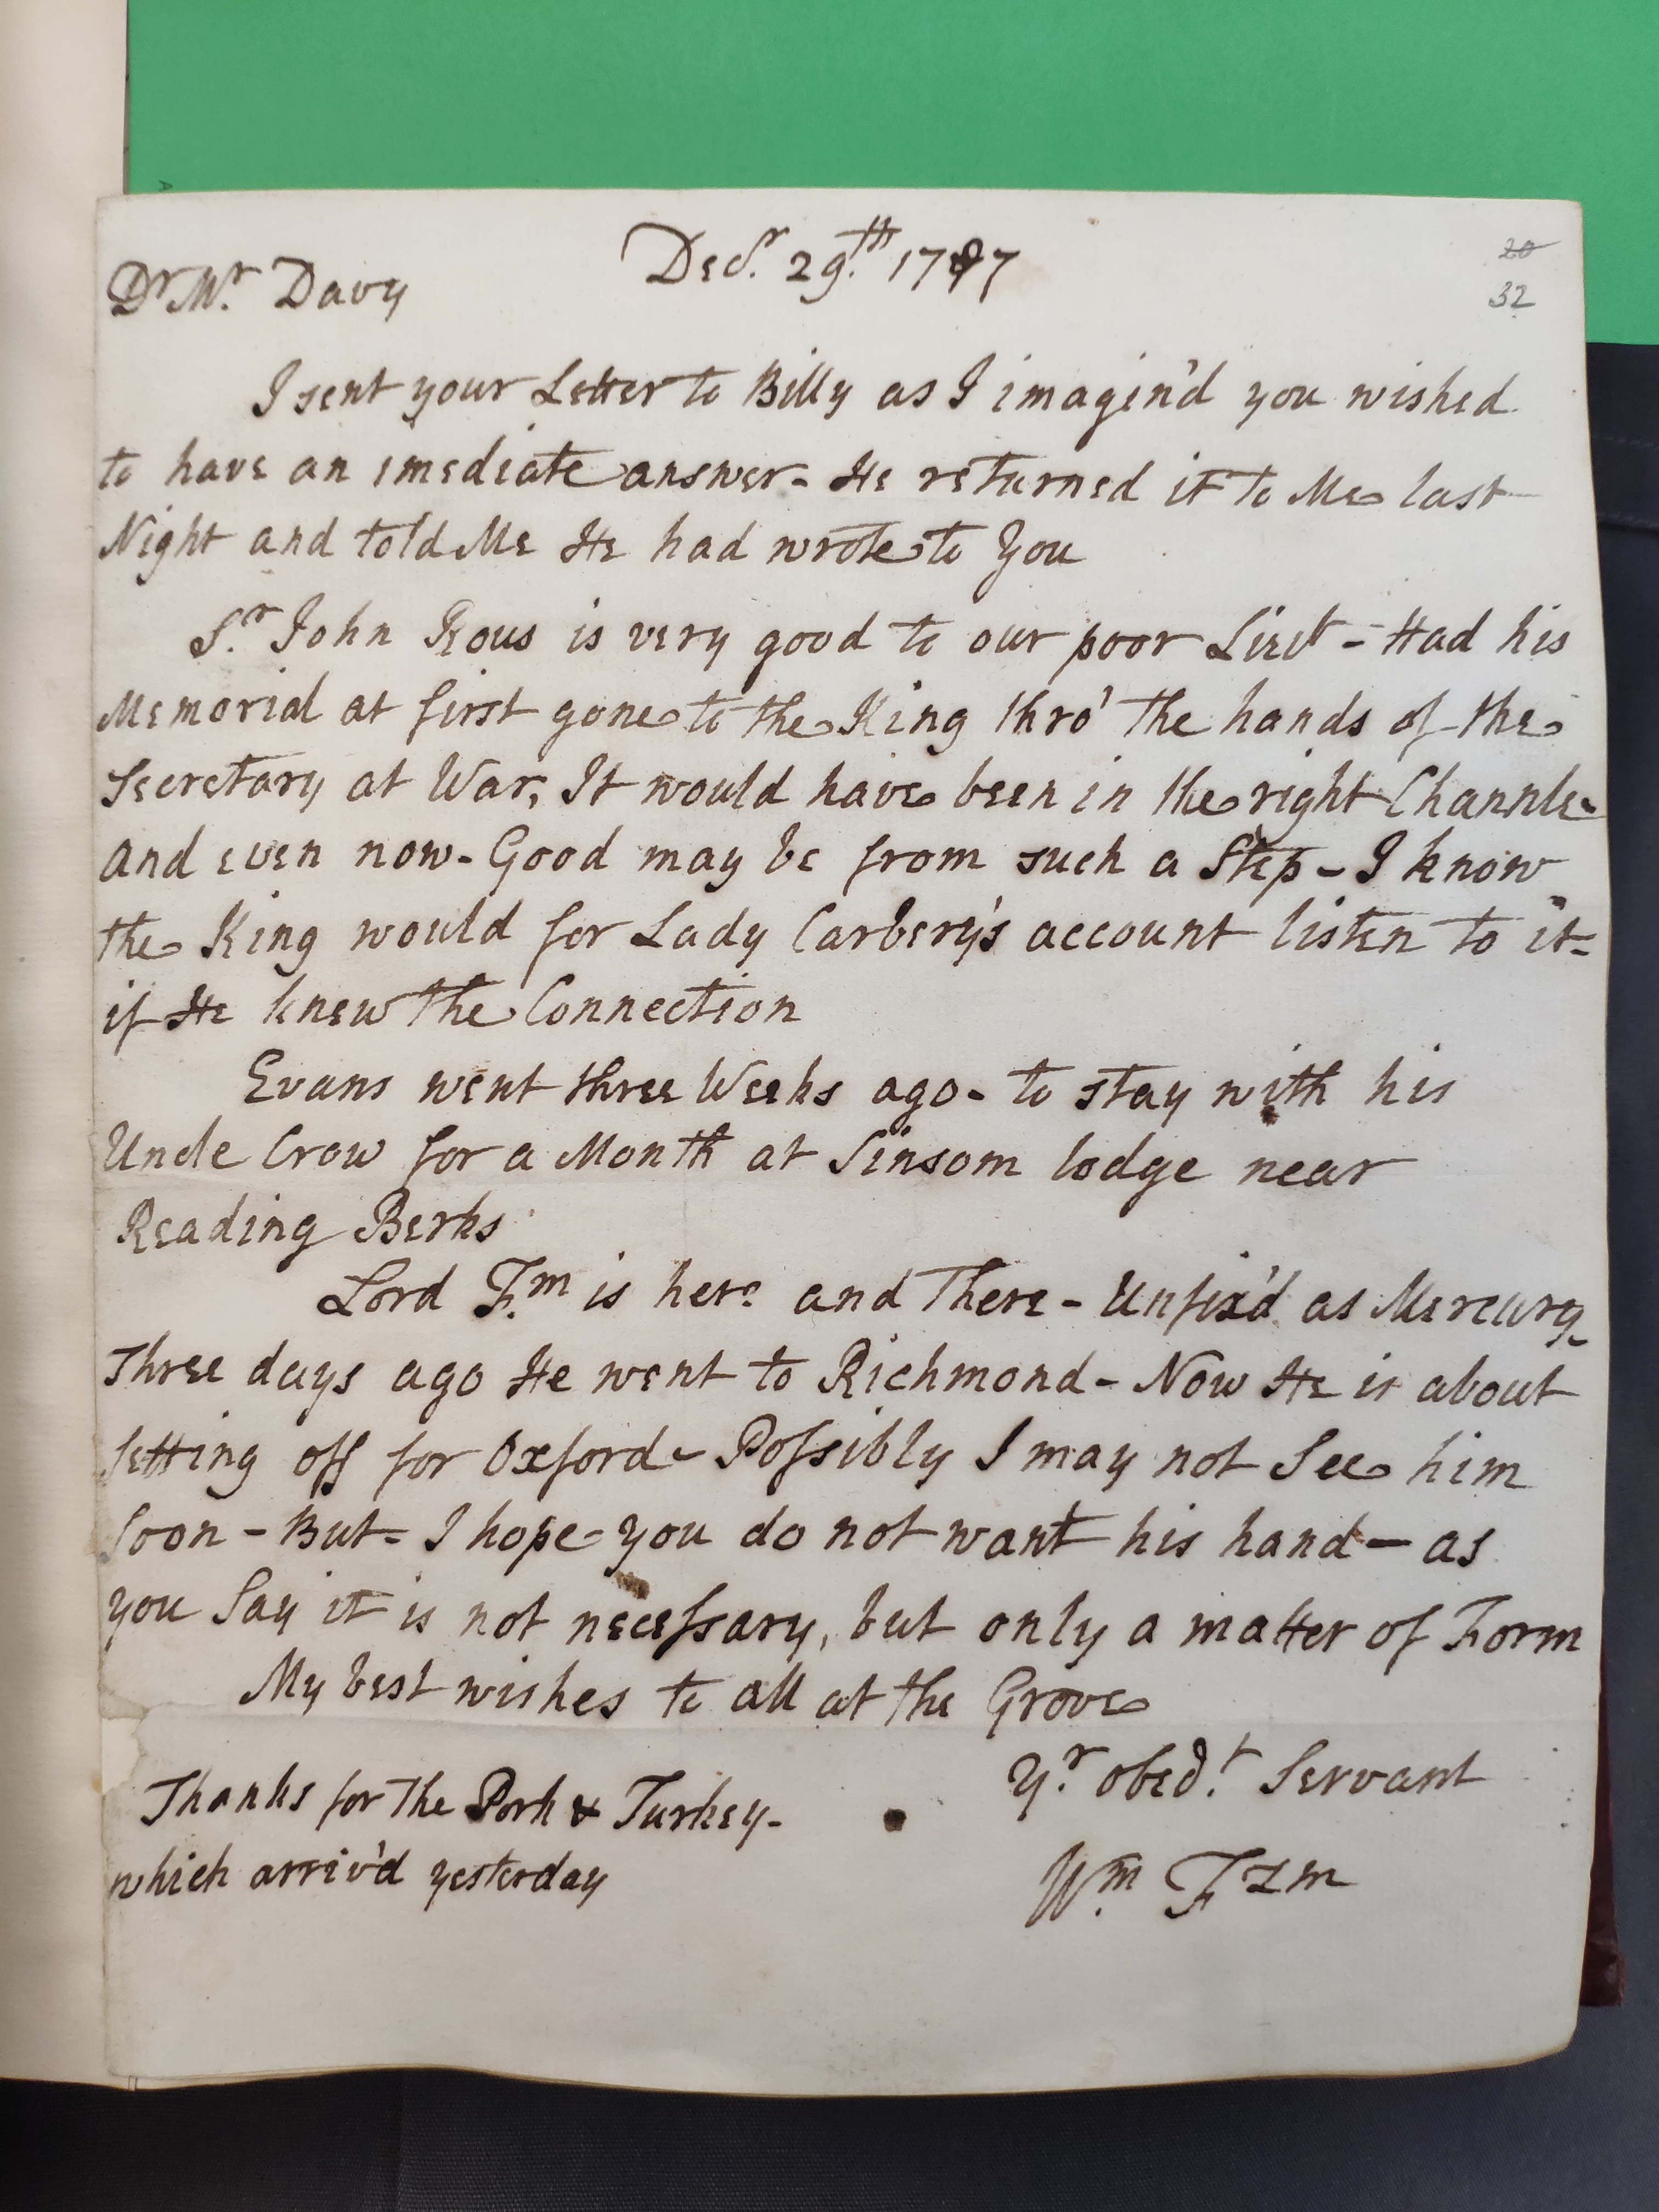 Decr. 29th. 1787
20
32
Dr Mr. Davy
I sent your Letter to Billy as I imagin'd you wished
to have an imediate answer - He returned it to Me last
Night and told Me He had wrote to You
Sr. John Rous is very good to our poor Lieut - Had his
Memorial at first gone to the King thro' the hands of the
Secretary at War, It would have been in the right Channle -
and even now - Good may be from such a Step - I know
the King would for Lady Carbery's account listen to it =
if He knew the Connection
Evans went three Weeks ago - to stay with his
Uncle Crow for a Month at Sinsom lodge near
Reading Berks
Lord F.m is here and There - Unfix'd as Mercury -
Three days ago He went to Richmond - Now He is about
setting off for Oxford - Possibly I may not See him
soon - But = I hope - you do not want his hand — as
you Say it is not necessary, but only a matter of Form
My best wishes to all at the Grove
Yr. obedt. Servant
Thanks for The Pork & Turkey -
which arriv'd yesterday
Wm. Fzm